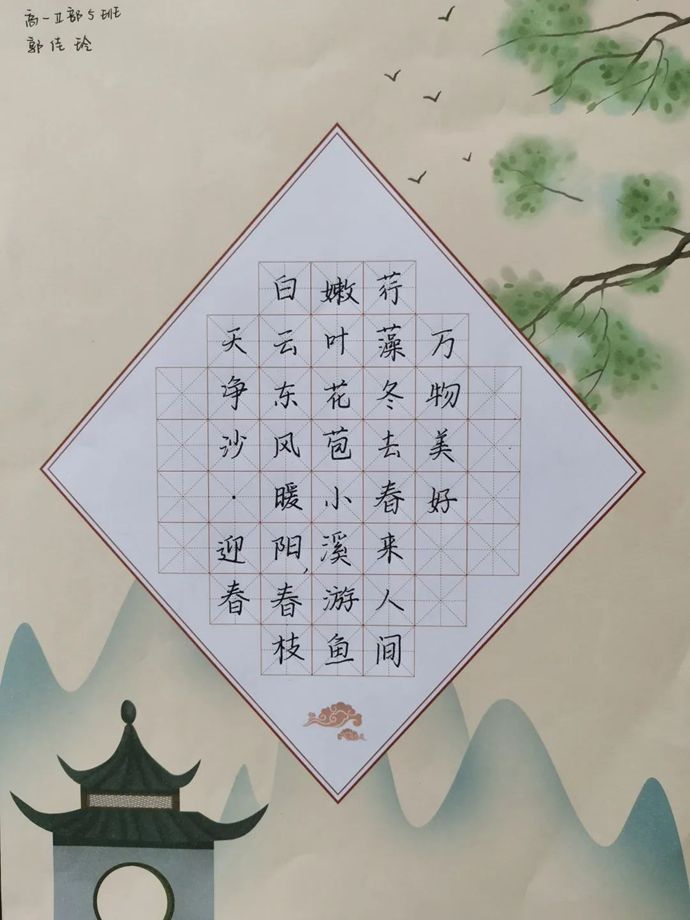 高一Ⅱ部5班
郭佳玲
天净沙·迎春
白云东风暖阳,春枝
嫩叶花苞小溪游鱼
荇藻冬去春来人间
万物美好